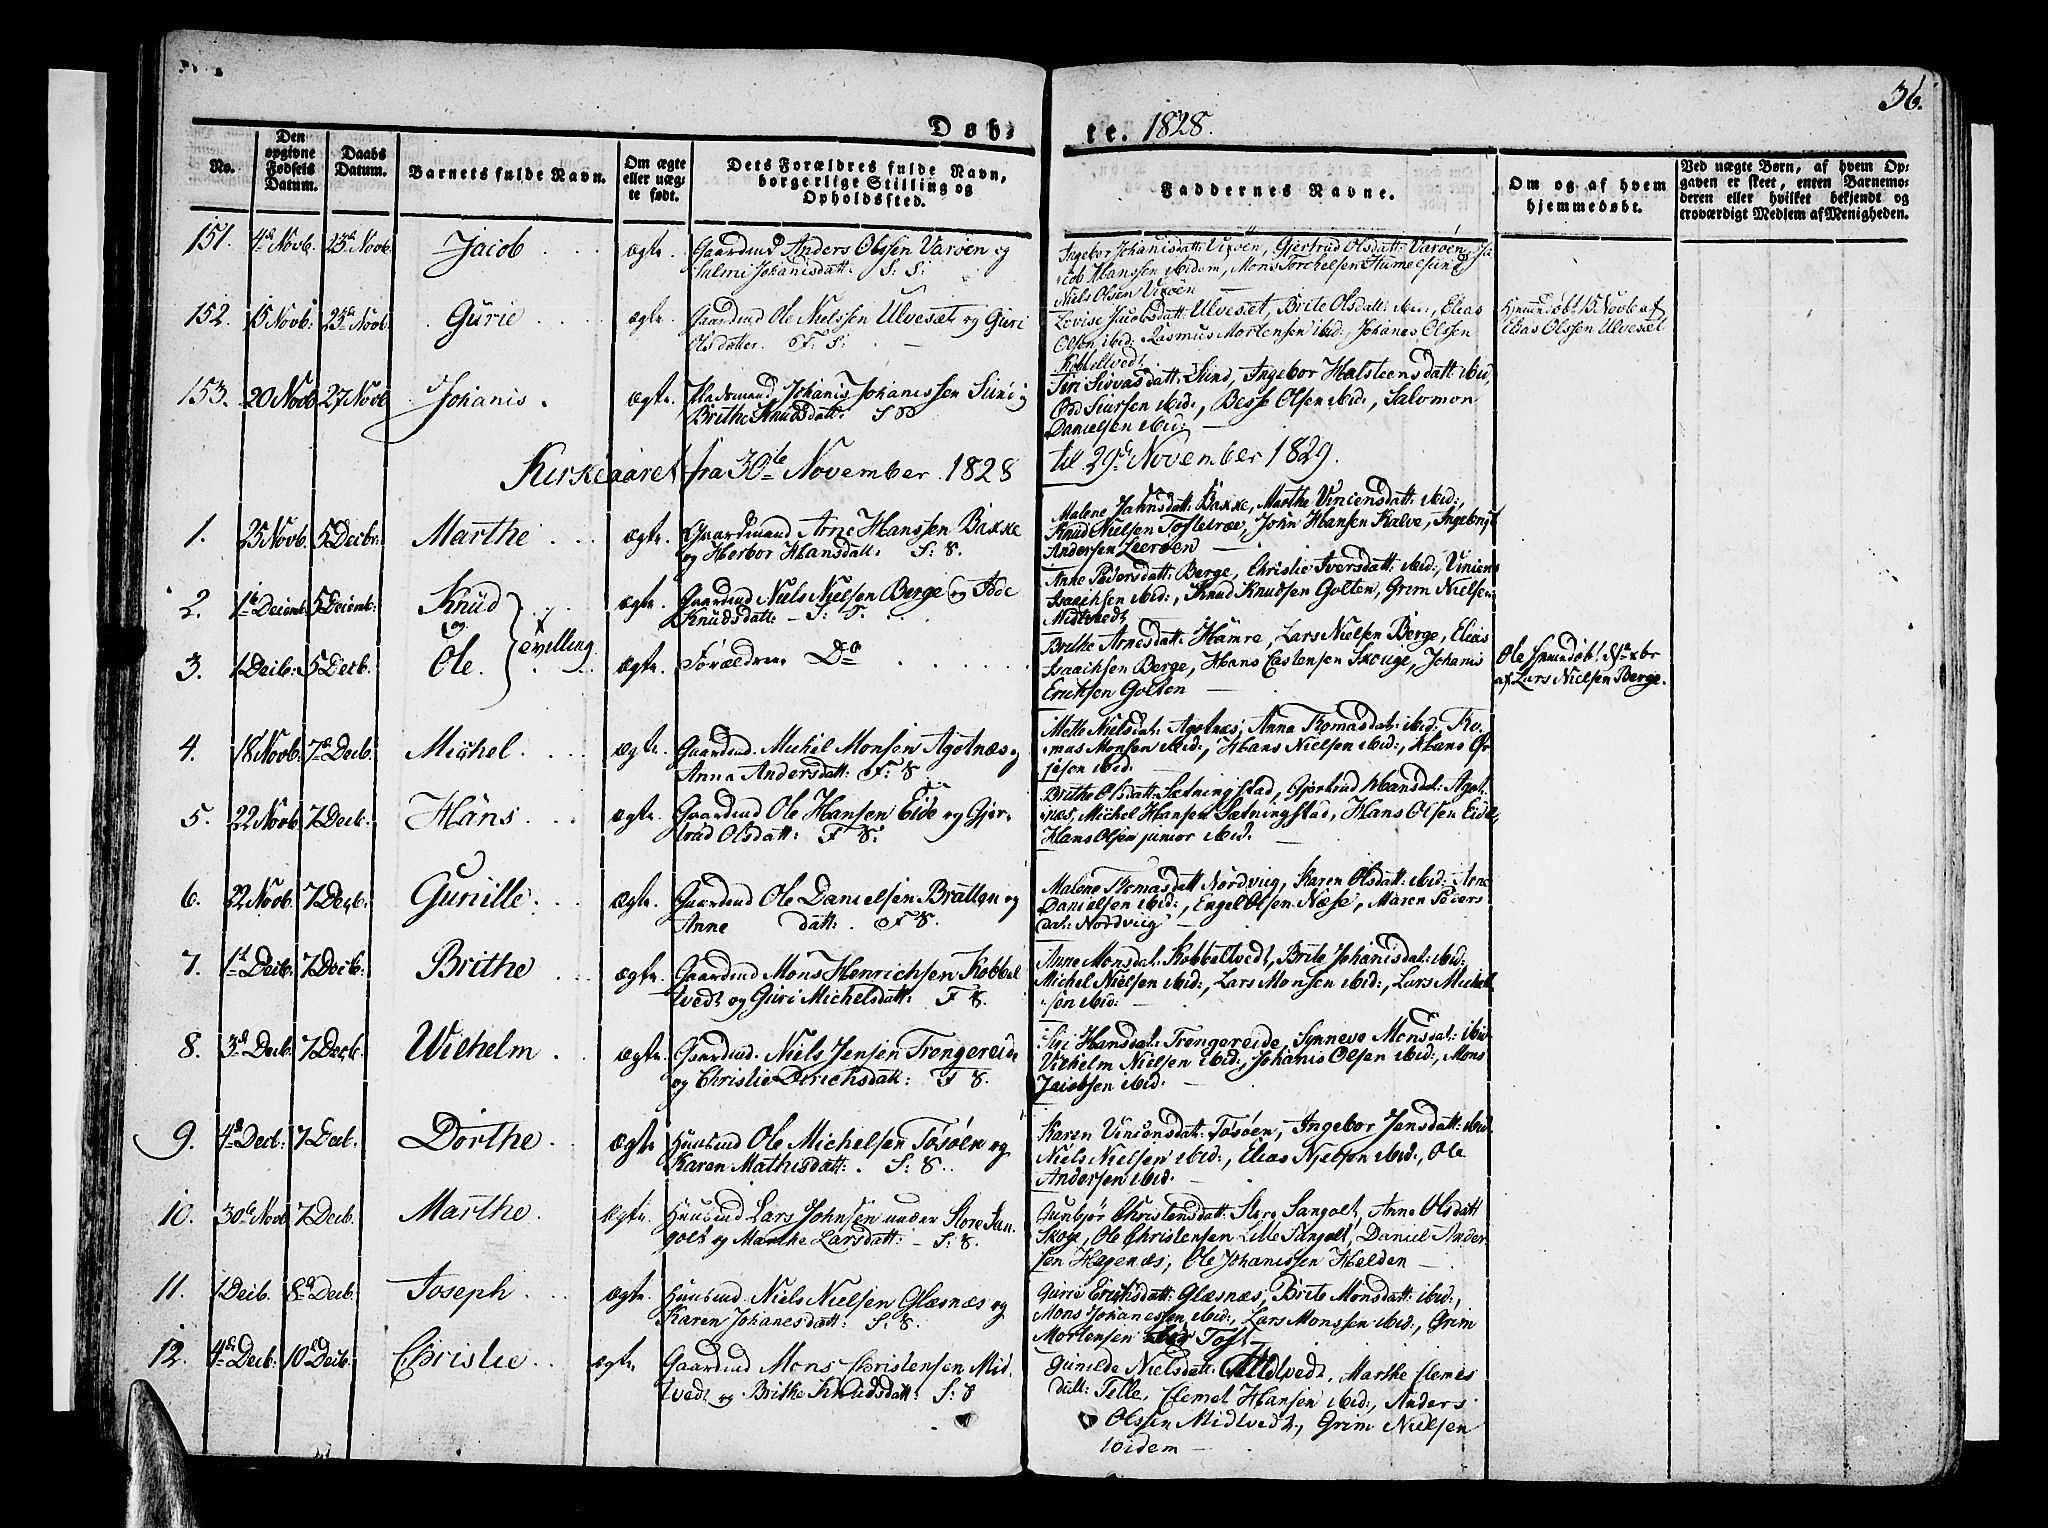 36.
Døb- te. 1828.
No.
Den opgivne Fødsels Datum.
Daabs Datum.
Barnets fulde Navn.
Om ægte eller uægte født.
Dets Forældres fulde Navn, borgerlige Stilling og Opholdssted.
Faddernes Navne.
Om og af hvem hjemmedøbt.
Ved uægte Børn, af hvem Opgaven er skeet, enten Barnemoderen eller hvilket bekjendt og troværdigt Medlem af Menigheden.
151. 4de Novb. 23de Novb. Jacob ægte Gaardmd Anders Olssen Varøen og
Salmi Johanisdatt: S: S:
Ingebor Johanisdatt: Virøen, Gjertrud Olsdatt: Varøen, Ja
cob Hanssen ibidem, Mons Torchelsen Humelsund
Niels Olsen Virøen
152. 15 Novb: 23de Novb. Gurie ægte Gaardmd Ole Nielssen Ulveset og Guri
Olsdatter. F: S:
Lovise Jacobsdatt: Ulveset, Brite Olsdatt: ibid:, Elias
Olsen ibid: Rasmus Mortensen ibid:, Johanes Olssen
Kobbeltvedt
Hjemmedøbt 15 Novb af
Elias Olssen Ulveset
153. 20 Novb 27 Novb Johanis. ægte. Johanis Johanissen Sund og
Brithe Knudsdatt: S S
Siri Sivasdatt: Sund, Ingebor Halsteensdatt: ibid,
Siursen ibid:, Besse Olsen ibid:, Salomon
Danielsen ibid:
Kirkeaaret fra 30te November 1828 til 29de November 1829.
1. 25 Novb. 5 Decbr: Marthe ægte. Gaardmand Arne Hanssen Bakke
og Herbor Hansdatt: S: S.
Malene Jahnsdatt: Bakke, Marthe Viniensdatt: ibid:,
Knud Nielsen Tofteræe, John Hansen Kalve, Ingebrigt
Andersen Leerøen
2. 1te Decemb: 5 Decemb: Knud ægte. Gaardmd Niels Nielsen Berge og
Knudsdatt: S: S.
Anne Pedersdatt: Berge, Christie Iversdatt: ibid:, Viniens
Isaachsen ibid:, Knud Knudsen Golten, Grim Nielsen
Midtvedt
og
tvilling
3. 1 Decb: 5 Decb. Ole. ægte. Forældrene Do
Brithe Arnesdatt: Hamre, Lars Nielsen Berge, Elias
Isaachsen Berge, Hans Castensen Skouge, Johanis
Erichsen Golten
Ole
af Lars Nielsen Berge.
4. 18 Novb: 7de Decb. Michel. ægte. Gaardmd. Michel Monsen Agotnæs og
Anna Andersdatt: F: S.
Mette Nielsdat: Agotnæs, Anna Tomasdat: ibid:, To-
mas Monsen ibid:, Hans Nielsen ibid:, Hans
ibid:
5. 22 Novb. 7 Decb: Hans ægte. Gaardmd Ole Hansen Eide og Gjer-
trud Olsdatt: F S:
Brithe Olsdatt: Sætningstad, Gjertrud Hansdat: Agot-
næs, Michel Hansen Sætningstad, Hans Olsen Eide,
Hans Olsen junior ibid:
6. 22 Novb. 7 Decb: Gunille ægte. Gaardmd Ole Danielsen Bratten og
Anne datt: F S.
Malene Tomasdatt Nordviig, Karen Olsdatt: ibid: Arne
Danielsen ibid:, Engel Olsen Næse, Maren Peders
dat: Nordviig
7. 1te Decb. 7 Decb Brithe ægte. Gaardmd Mons Henrichsen Kobbel
tvedt og Guri Michelsdatt: F S.
Anne Monsdat: Kobbeltvedt, Brite Johanisdat: ibid:,
Michel Nielsen ibid:, Lars Monsen ibid:, Lars Michel
sen ibid:
8. 3de Decb 7 Decb Wilhelm ægte. Gaardmd. Niels Jensen Trengereide
og Christie Dirichsdatt: F S.
Siri Hansdat: Trengereide, Synneve Monsdat: ibid
Vilhelm Nielsen ibid:, Johanis Olsen ibid:, Mons
Jacobsen ibid.
9. 4de Decb: 7 Decb. Dorthe ægte Huusmd Ole Michelsen Tøsøen og
Karen Mathisdatt: S: S.
Karen Viniensdat: Tøsøen, Ingebor Jensdatt: ibid.
Niels Nielsen ibid:, Elias Nielsen ibid:, Ole
Andersen ibid.
10. 30te Novb 7 Decb. Marthe. ægte. Huusmd Lars Johnsen under Store San-
golt og Marthe Larsdatt: S: S.
Gunbjør Christensdatt: Store Sangolt, Anne Olsdatt
Skoge, Ole Christensen Lille Sangolt, Daniel Ander
sen Hagenæs, Ole Johanissen Helden
11. 1 Decb. 8de Decb. Joseph ægte. Huusmd. Niels Nielsen Glæsnæs og
Karen Johanesdatt: S: S.
Gurie Erichsdatt: Glæsnæs, Brite Monsdatt: ibid:,
Mons Johanessen ibid:, Lars Monssen ibid:, Grim
Mortensen Toft
12. 4de Decb: 10de Decb: Christie ægte Gaardmd Mons Christensen Mid-
tvedt og Brithe Knudsdatt: S: S
Gunilde Nielsdatt: Midtvedt, Marthe Clemes
datt: Telle, Clemet Hansen ibid:, Anders
Olssen Midtvedt, Grim Nielsen
ibidem